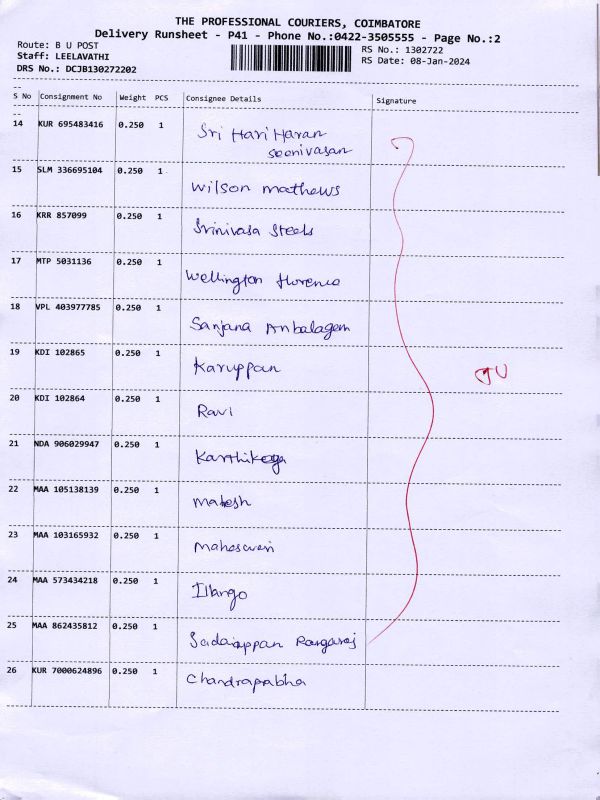 THE PROFESSIONAL COURIERS, COIMBATORE
Delivery Runsheet - P41 - Phone No.:0422-3505555 - Page No.:2
Route: B U POST
RS No.: 1302722
Staff: LEELAVATHI
RS Date: 08-Jan-2024
DRS No.: DCJB130272202
S No Consignment No Weight PCS Consignee Details Signature
14 KUR 695483416 0.250 1 Sri HariHaran
Seenivasan
15 SLM 336695104 0.250 1 Wilson Mathews
16 KRR 857099 0.250 1 Srinivasa Steels
17 MTP 5031136 0.250 1 Wellington florence
18 VPL 403977785 0.250 1 Sanjana Anbalagem
19 KDI 102865 0.250 1 Karuppan
20 KDI 102864 0.250 1 Ravi
21 NDA 906029947 0.250 1 Karthikeya
22 MAA 105138139 0.250 1 Mahesh
23 MAA 103165932 0.250 1 Maheswari
24 MAA 573434218 0.250 1 Illango
25 MAA 862435812 0.250 1 Sadaiappan Rangaraj
26 KUR 7000624896 0.250 1 Chandraprabha